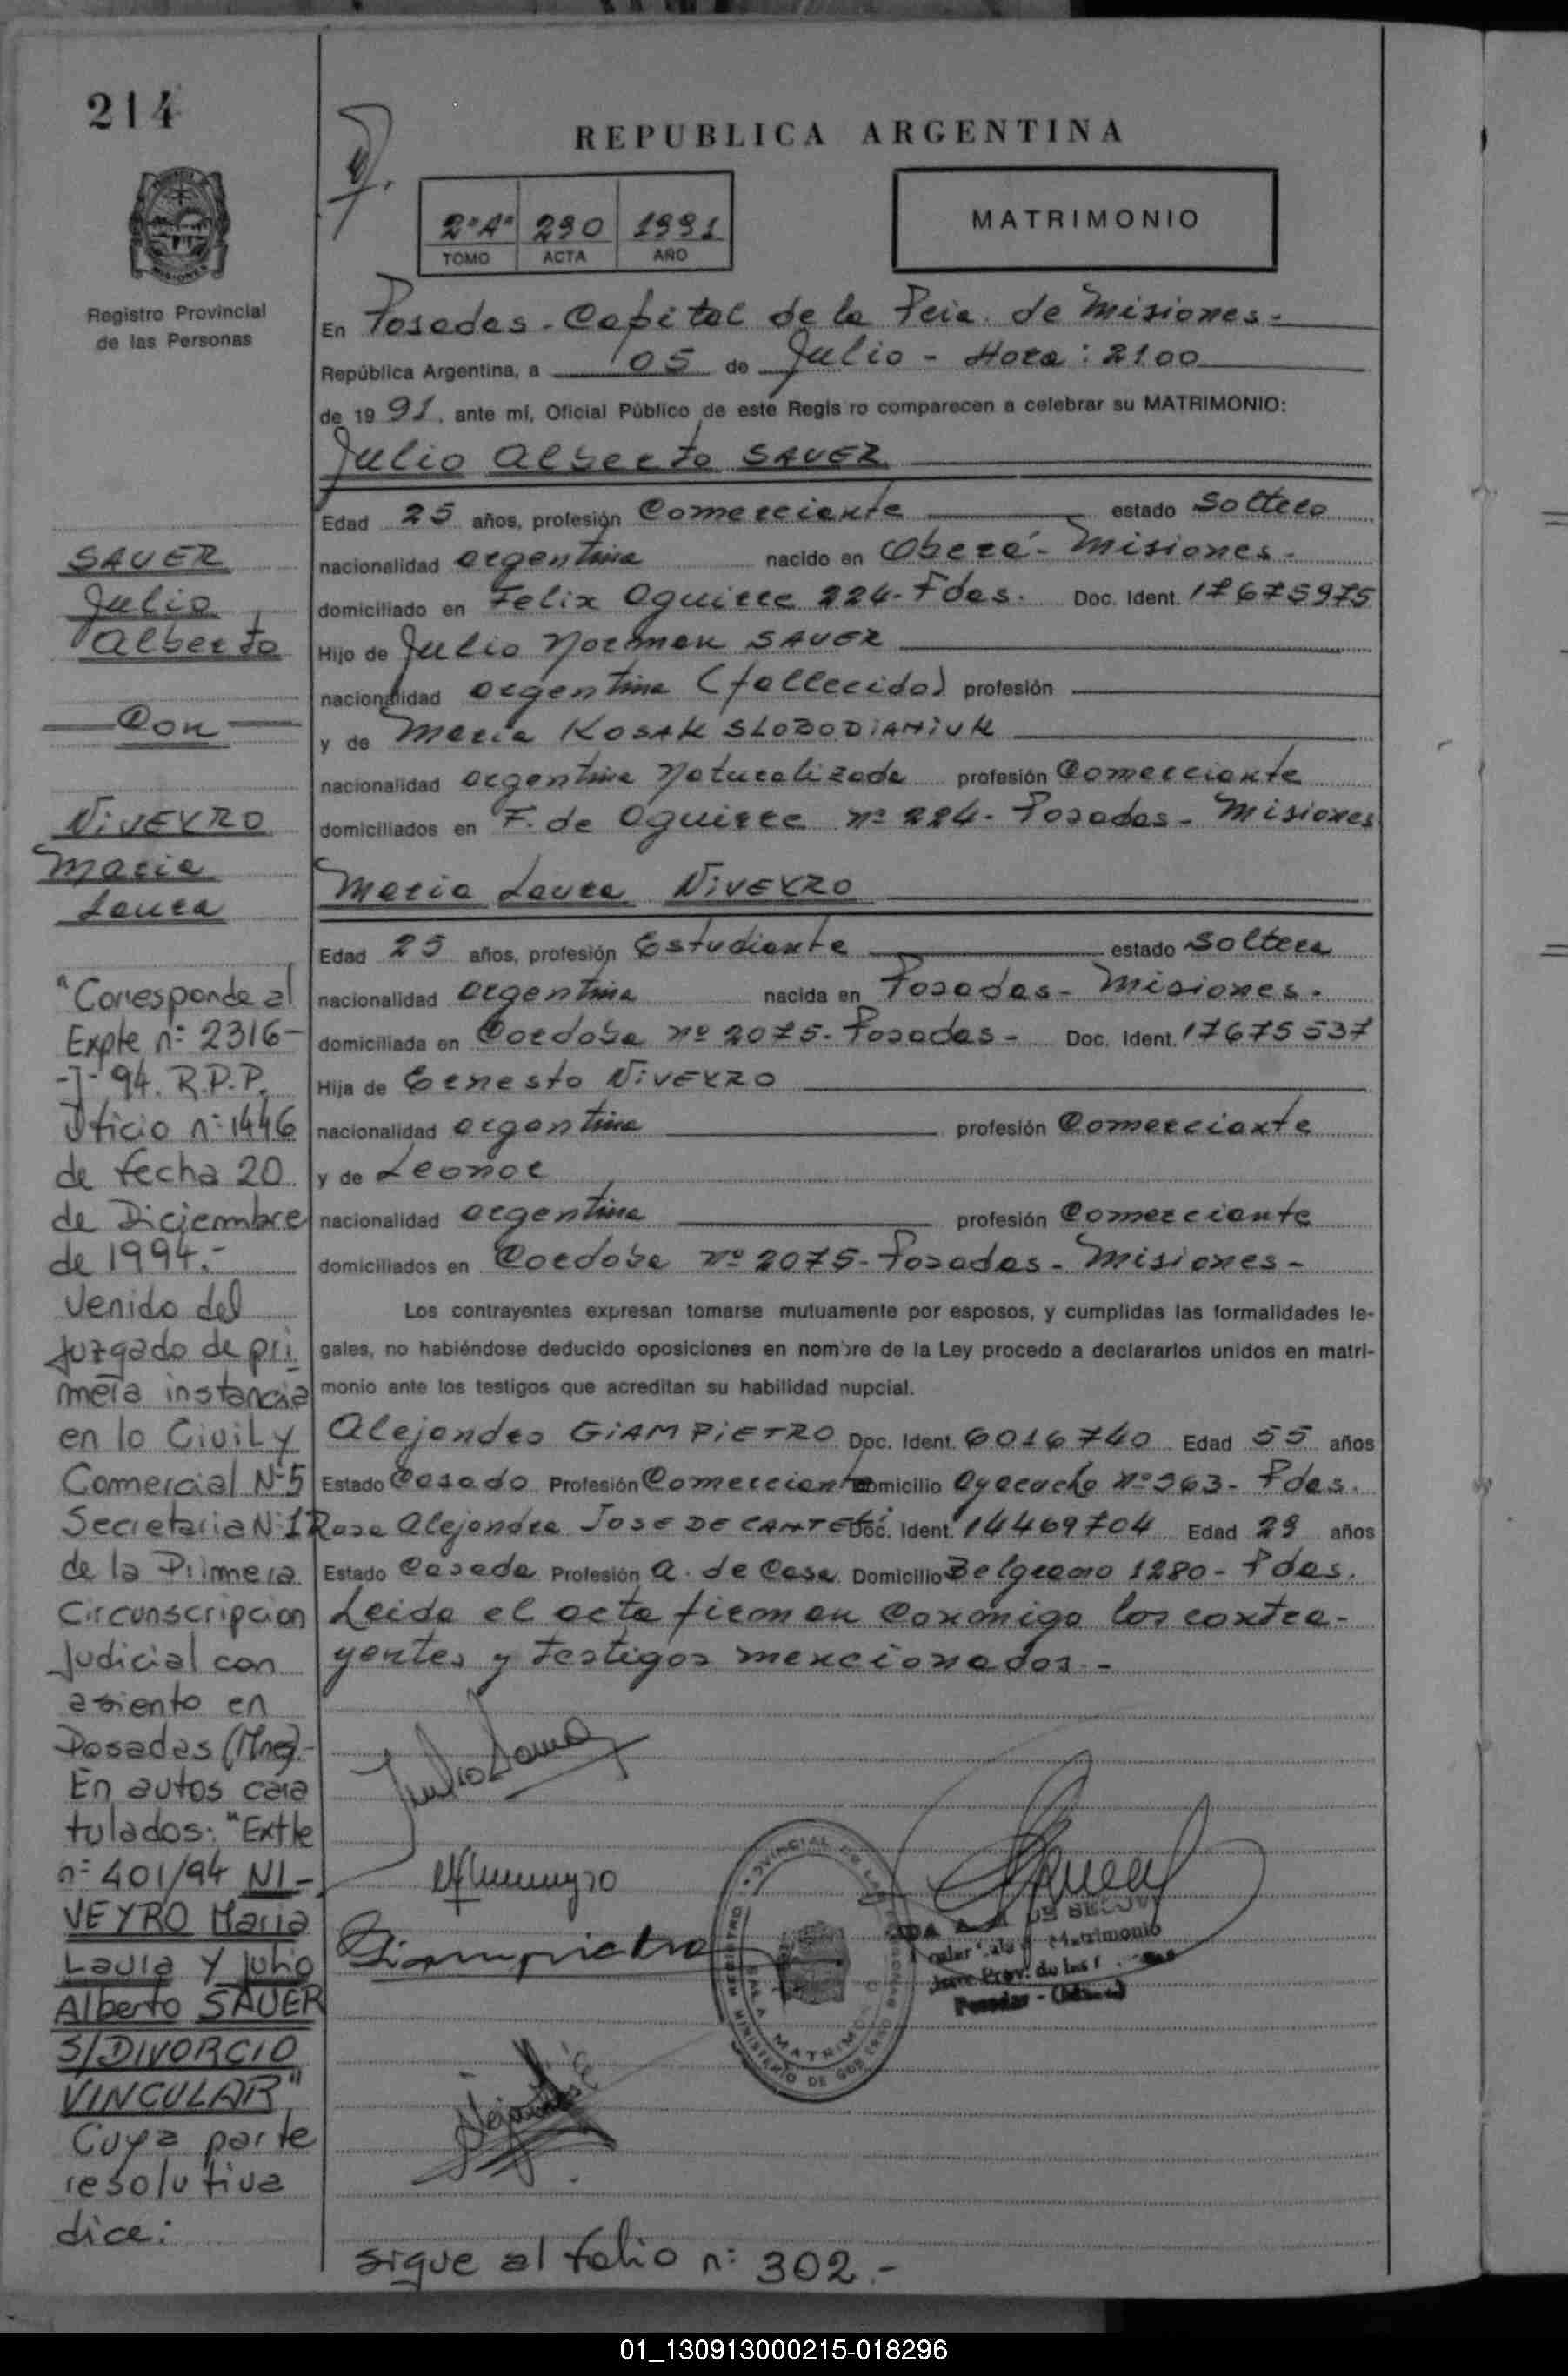 214
REPUBLICA ARGENTINA
2º"A" 290 1991
TOMO ACTA AÑO
MATRIMONIO
Registro Provincial
de las Personas
En Posadas - Capital de la Pcia. de Misiones.-
República Argentina, a 05 de Julio - Hora: 21.00
de 19 91, ante mí, Oficial Público de este Regis ro comparecen a celebrar su MATRIMONIO:
Julio Alberto SAUER
Edad 25 años, profesión Comerciante estado Soltero
nacionalidad argentina nacido en Oberá - Misiones.
domiciliado en Felix Aguirre 224 - Pdas. Doc. Ident. 17675975
Hijo de Julio Norman SAUER
nacionalidad argentina (fallecido) profesión
y de Maria KOSAK SLOBODIANIUK
nacionalidad argentina Naturalizada profesión Comerciante
domiciliados en F. de Aguirre nº 224 - Posadas - Misiones
Maria Laura NIVEYRO
Edad 25 años, profesión Estudiante estado Soltera
nacionalidad argentina nacida en Posadas - Misiones.
domiciliada en Cordoba nº 2075 - Posadas - Doc. Ident. 17675537
Hija de Ernesto NIVEYRO
nacionalidad argentina profesión Comerciante
y de Leonor
nacionalidad argentina profesión Comerciante
domiciliados en Cordoba nº 2075 - Posadas - Misiones -
Los contrayentes expresan tomarse mutuamente por esposos, y cumplidas las formalidades le-
gales, no habiéndose deducido oposiciones en nombre de la Ley procedo a declararlos unidos en matri-
monio ante los testigos que acreditan su habilidad nupcial.
Alejandro GIAMPIETRO Doc. Ident. 6016740 Edad 55 años
Estado Casado Profesión Comerciante Domicilio Ayacucho nº 363 - Pdas.
Rosa Alejandra JOSE DE CANTELI Doc. Ident. 14469704 Edad 29 años
Estado Casada Profesión A. de Casa Domicilio Belgrano 1280 - Pdas.
Leida el acta firman conmigo los contra-
yentes y testigos mencionados -
sigue al folio n: 302.-
SAUER
Julio
Alberto
Con
NIVEYRO
Maria
Laura
"Corresponde al
Expte n: 2316-
-J- 94. R.P.P.
Oficio n: 1446
de fecha 20
de Diciembre
de 1994.-
venido del
Juzgado de pri
mera instancia
en lo Civil y
Comercial N:5
Secretaria N:1
de la Primera
Circunscripcion
Judicial con
asiento en
Posadas (Mnes).-
En autos cara
tulados: "Extte
n: 401/94 NI-
VEYRO Maria
Laura y Julio
Alberto SAUER
S/DIVORCIO
VINCULAR"
Cuya parte
resolutiva
dice:
Giampietro
MATRIM
MINISTERIO DE GOBIERNO
01_130913000215-018296